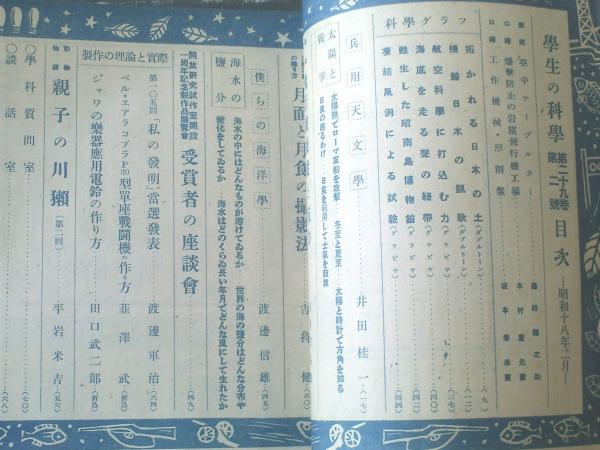 學生の科學 第二十九卷 第二號 目次 ―昭和十八年二月―
表紙 空中ケーブルカー
口繪 爆擊防止の岩窟飛行機工場
口繪 工作機械・形削盤
科學グラフ
拓かれる日本の土（ダブルトーン）（九）
捕鯨日本の凱歌（ダブルトーン）（一二）
航空科學に打込む力（グラビヤ）（三七）
海底を走る聲の紐帶（グラビヤ）（四〇）
甦生した昭南島博物館（グラビヤ）（四二）
凍結風洞による試驗（グラビヤ）（四四）
兵用天文學 井田桂一（一七）
太陽と戰爭
太陽熱でローマ軍船を攻擊 冬至と夏至 太陽と時計で方角を知る
日食の起るわけ 日食を利用して士氣を鼓舞
月面と月食の撮影法 吉 健（六〇）
僕らの海洋學 渡邊信雄（四五）
海水の鹽分
海水の中にはどんなものが溶けてゐるか 世界の海の鹽分はどんな分布や
變化をしてゐるか 海水はどのくらゐ長い年月でどんな風にして生れたか
開放研究試作室開設一周年記念製作品展覽會 受賞者の座談會（四九）
製作の理論と實際
第一〇五回「私の發明」當選發表 渡邊軍治（六四）
ベル・エアラコブラP39型單座戰鬪機の作り方 韮澤武（折込）
ジャワの樂器應用電鈴の作り方 田口武二郎（折込）
動物物語 親子の川獺（第二回） 平岩米吉（五六）
〇學科質問室（六八）
〇談話室